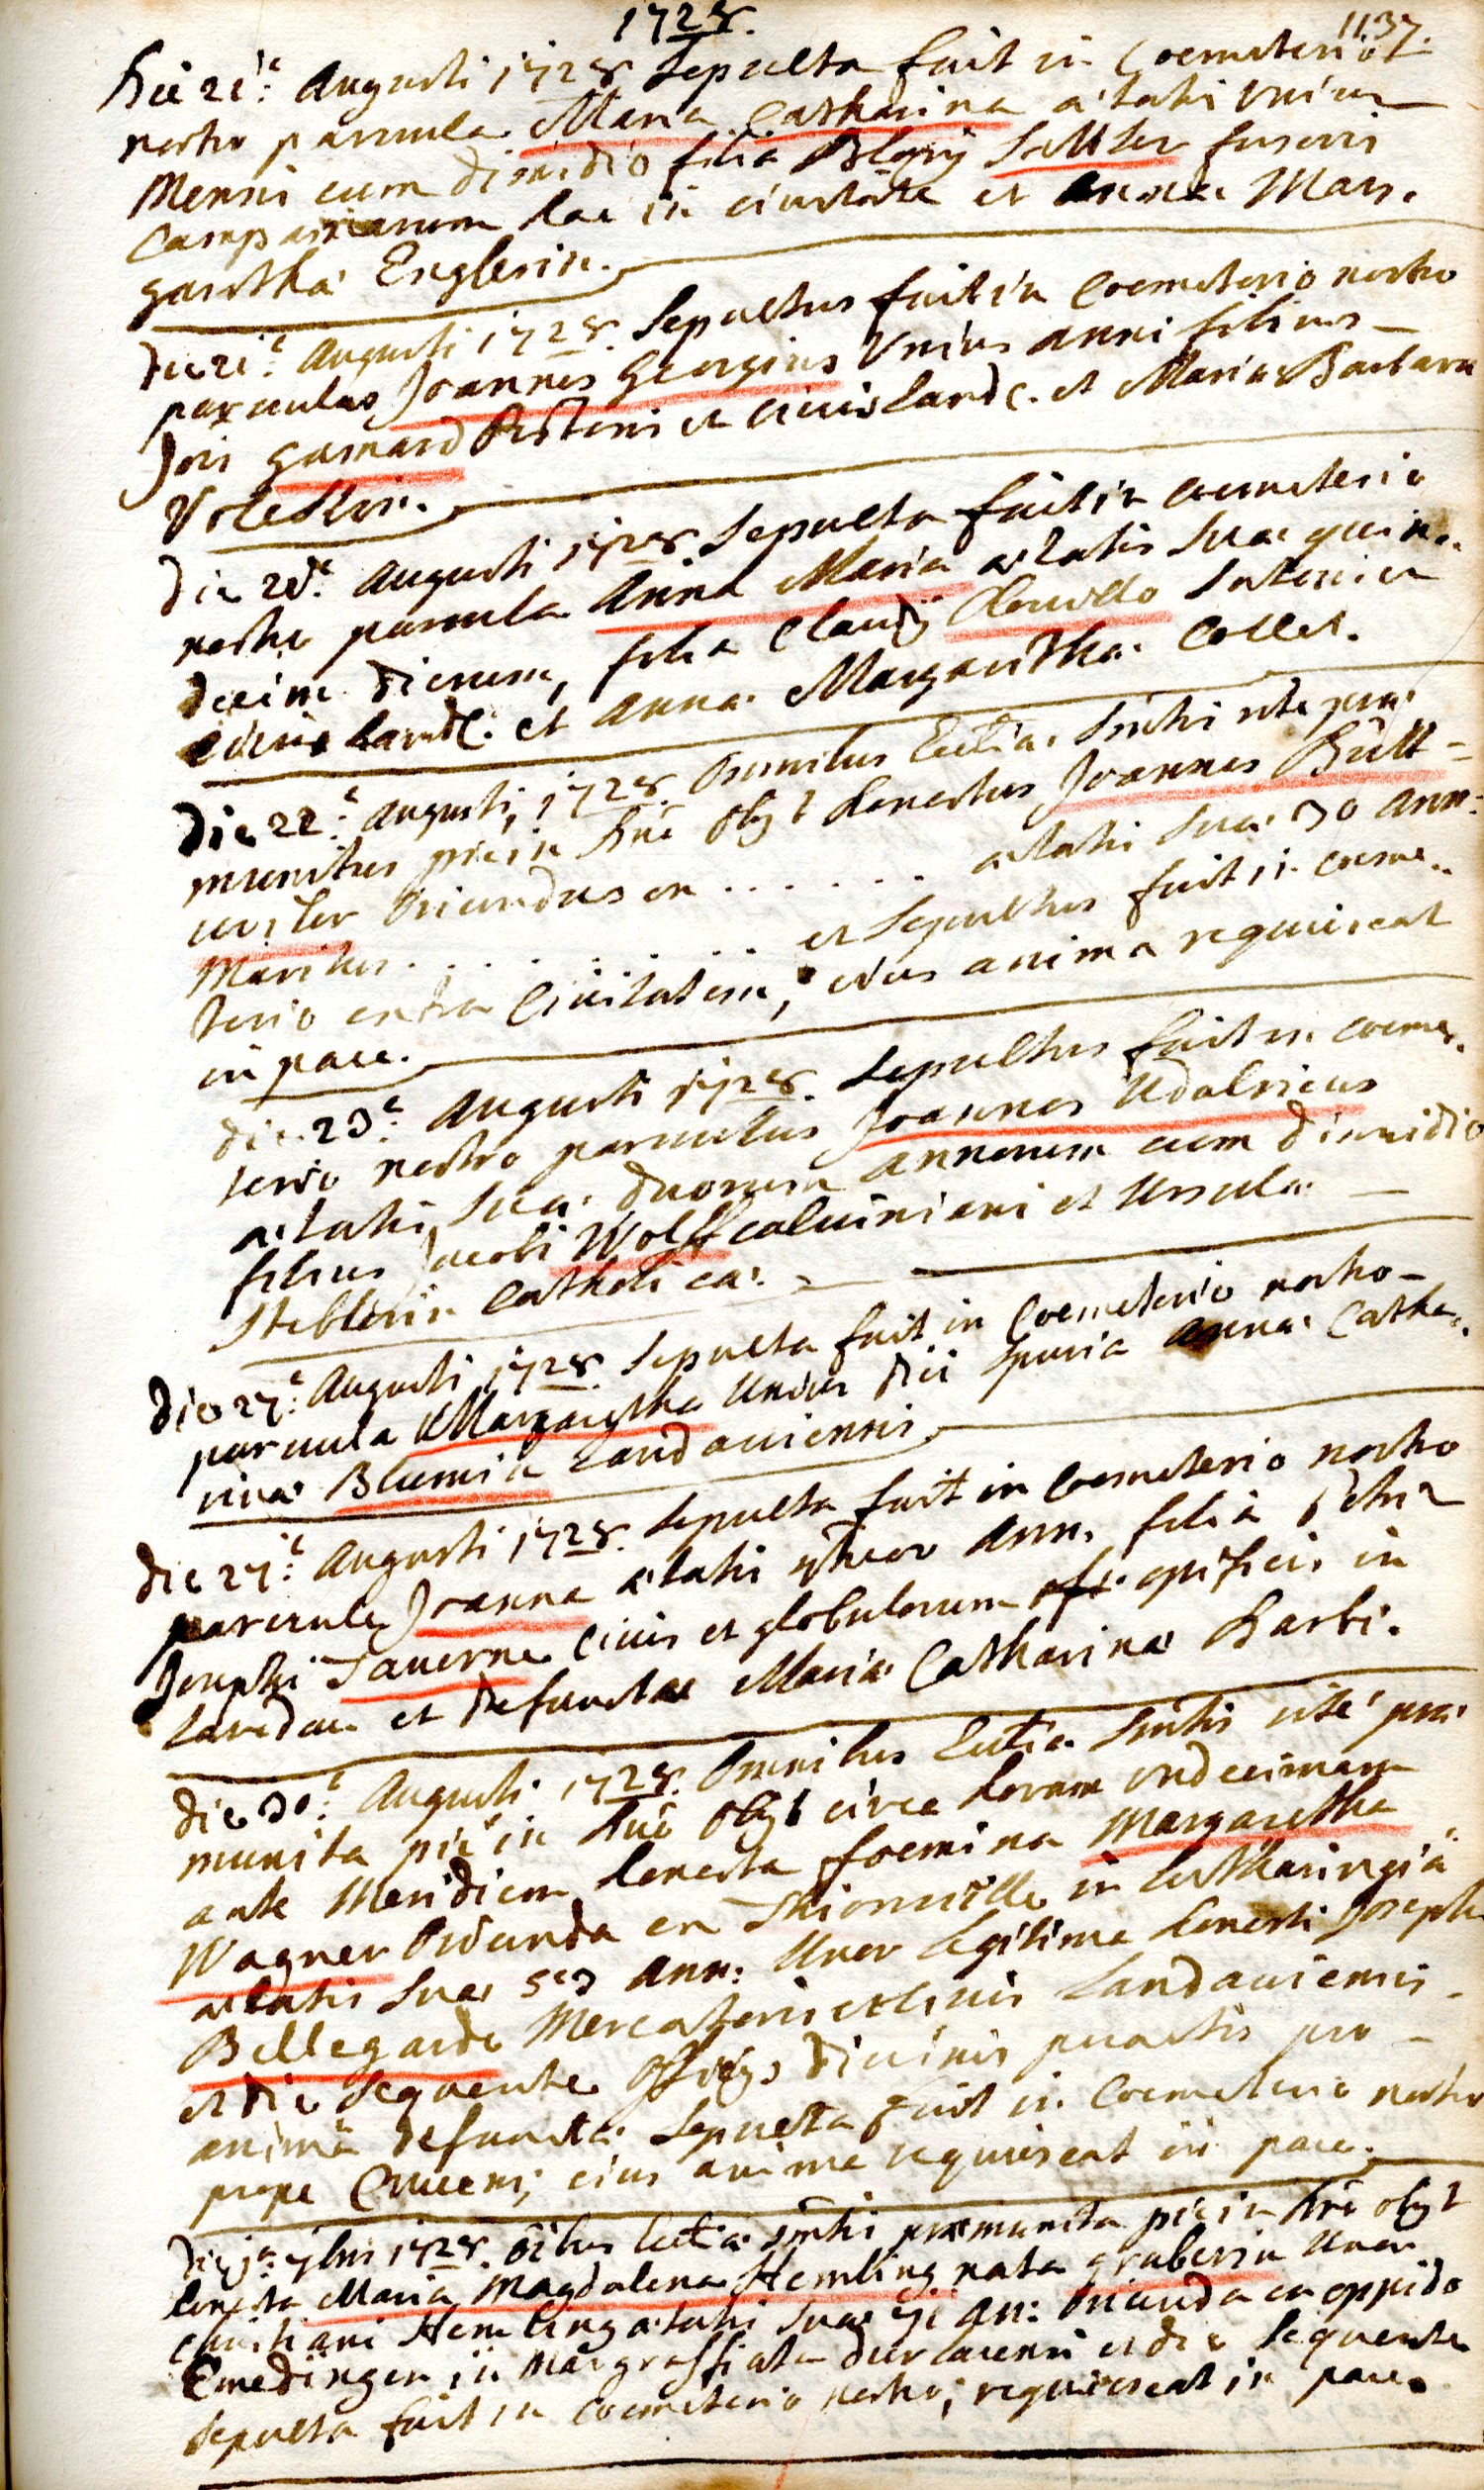 1728.
1137.
hîc 21ª: Augusti 1728 Sepulta fuit in Coemeterio
nostro parvula Maria Catharina ætatis unius
Mensis cum dimidio filia Blasÿ Sattler fusoris
Campanarum hac in civitate et Annæ Mar.
garethæ Englerin.
die 21ª: Augusti 1728. Sepultus fuit in Coemeterio nostro
parvulus Joannes Georgius Unius anni filius
Jois Gamard Pistoris et civis Land. et Mariæ Barbara
die 28ª: Augusti 1728. Sepulta fuit in coemeterio
nostro parvula Anna Maria ætatis suæ quin.
decim dierum, filia Claudÿ
civis Land: et Annæ Margarethæ Collet.
Die 22ª: Augusti, 1728. Omnibus Eccliæ Smtis rite præ
munitus pie in Dno obÿt honestus Joannes Bütt=
weiler Oriundus ex . . . . . . ætatis suæ 30 ann:
Maritus . . . . . . . et sepultus fuit in coeme..
terio extra Civitatem, eius anima requiescat
in pace.
die 23ª: Augusti 1728. Sepultus fuit in coeme.
terio nostro parvulus Joannes Udalricus
ætatis suæ duorum annorum cum dimidio
filius Jacobi Wolff calviniani et Ursulæ
Steblerin Catholicæ.
Die 27ª: Augusti 1728. Sepulta fuit in Coemeterio nostro
parvula Margaretha Unius diei spuria Annæ Catha.
rinæ Blumin Landaviensis
die 27ª: Augusti 1728. Sepulta fuit in Coemeterio nostro
parvula Joanna ætatis ann. filia Petri
Josephi Taverne Civis et globulorum opificis in
Landau et defunctæ Mariæ Catharinæ Barbi.
die 30ª: Augusti 1728. Omnibus Eccliæ Smtis rite præ
munita piè in Dno obÿt circa horam undecimam
ante Meridiem honesta foemina Margaretha
Wagner Oriunda ex Thionville in Lotharingiâ
ætatis suæ 53 ann: Uxor Legitima honesti Josephi
Bellegarde Mercatoris et Civis Landaviensis
et die sequente Offÿs divinis peractis pro
animâ defunctæ sepulta fuit in Coemeterio nostro
prope Crucem; eius anima requiescat in pace.
Die 1ª: 7bris 1728. oîbus Eccliæ smtis præmunita pie in Dno obÿt
honesta Maria Magdalena Hemling nata gruberin Uxor
christiani Hemling ætatis suæ 71 an: Oriunda ex oppido
Emedingen in Margraffiatu durlacensi et die sequente
sepulta fuit in Coemeterio nostro; requiescat in pace.